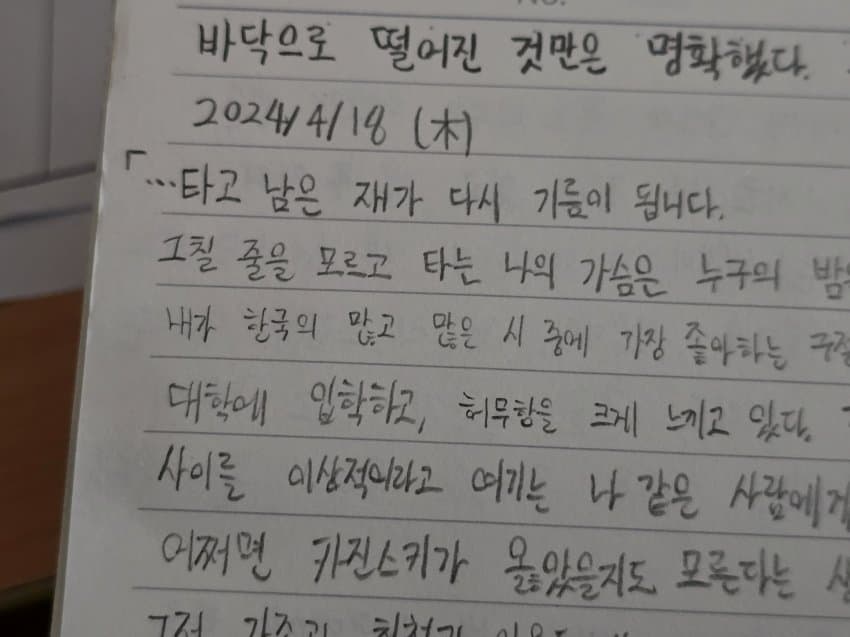 No.
바닥으로 떨어진 것만은 명확했다.
2024/4/18 (木)
「…타고 남은 재가 다시 기름이 됩니다.
그칠 줄을 모르고 타는 나의 가슴은 누구의 밤
내가 한국의 많고 많은 시 중에 가장 좋아하는 구절
대학에 입학하고, 허무함을 크게 느끼고 있다.
사이를 이상적이라고 여기는 나 같은 사람에게
어쩌면 카진스키가 옳았을지도 모른다는 생